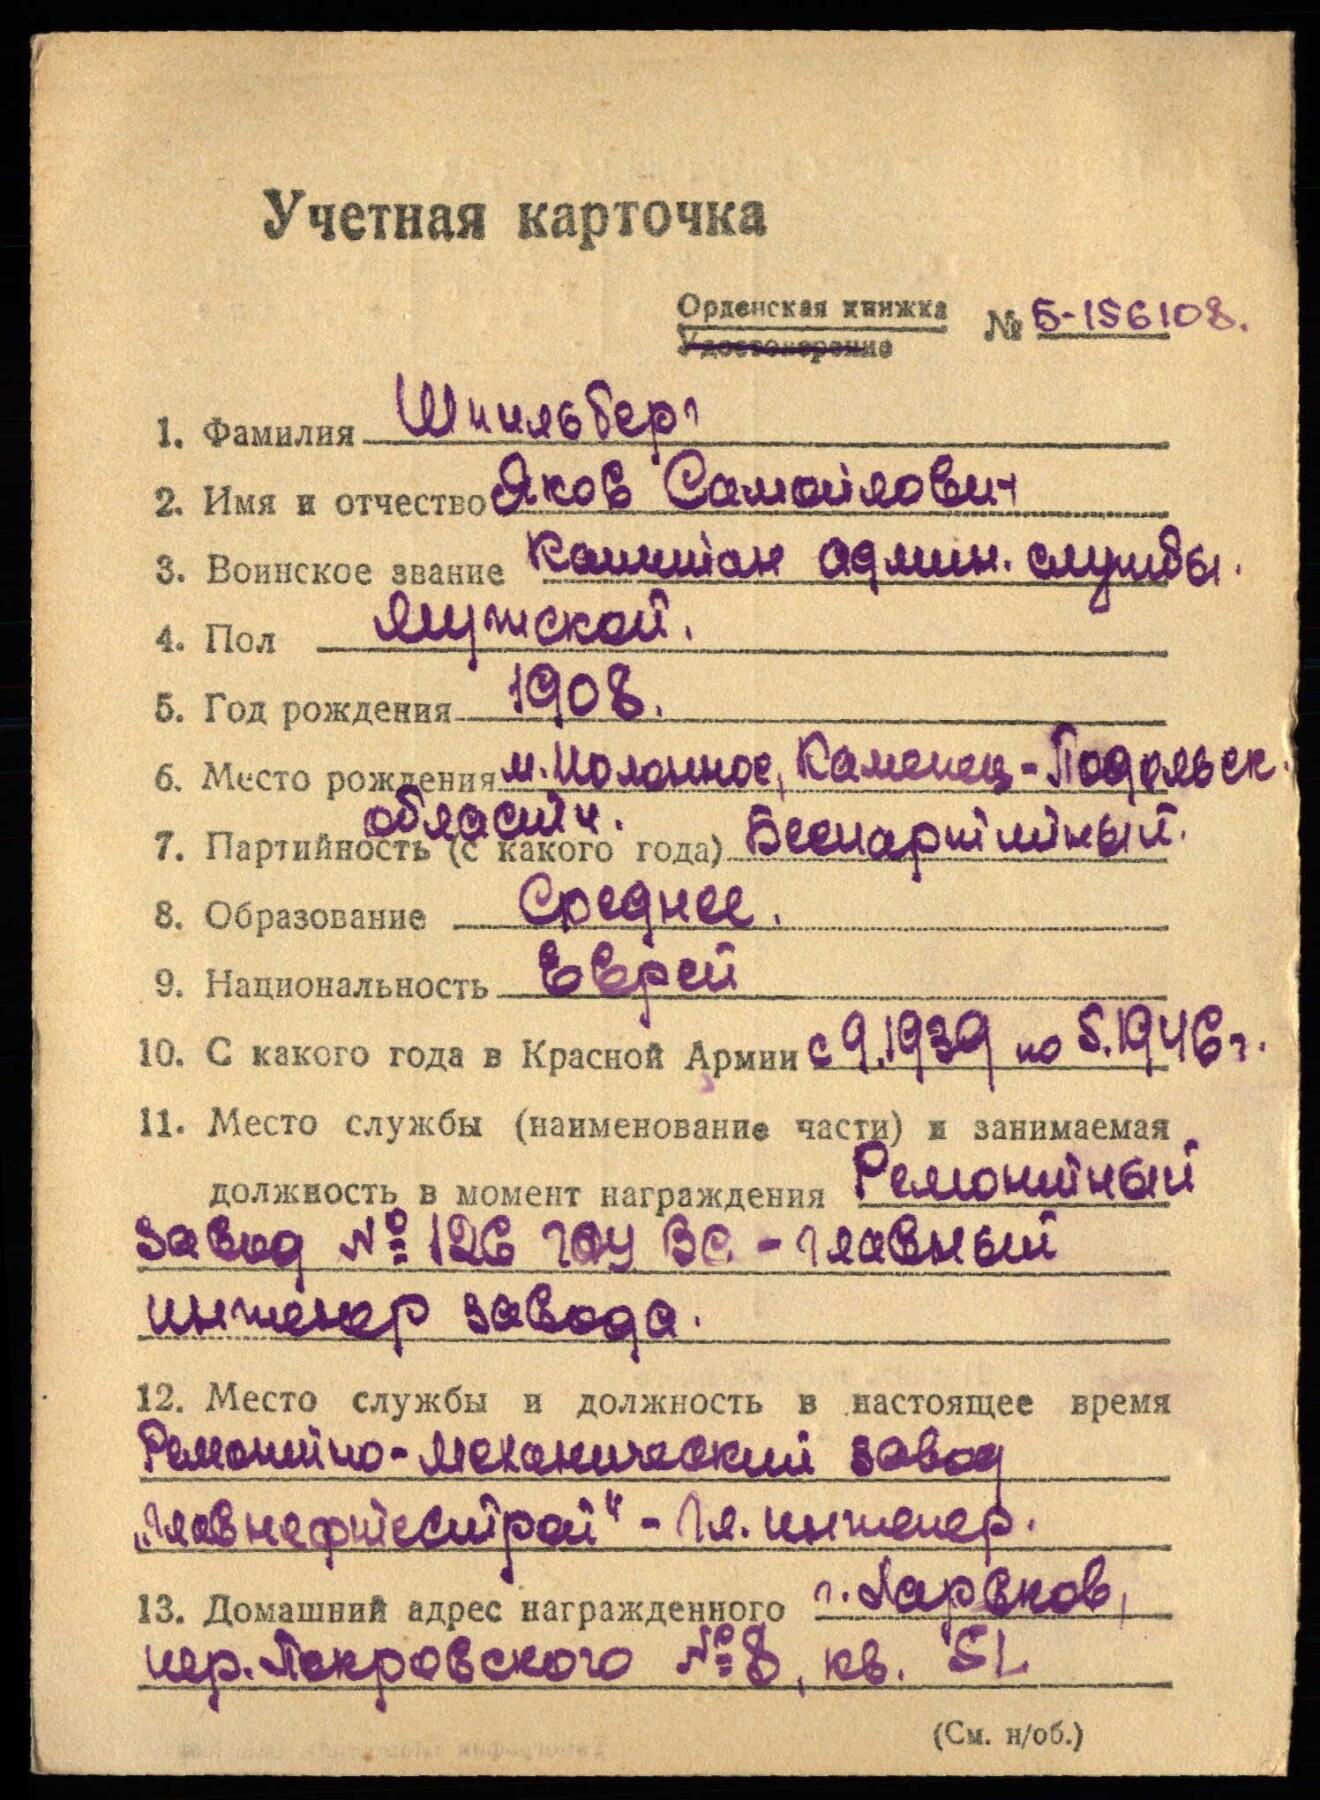 Учетная карточка
Орденская книжка
Удостоверение
№ Б-156108.
1. Фамилия Шпильберг
2. Имя и отчество Яков Самойлович
3. Воинское звание Капитан админ. службы.
4. Пол Мужской.
5. Год рождения 1908.
6. Место рождения м. Полонное, Каменец-Подольск.
области.
7. Партийность (с какого года) Беспартийный.
8. Образование Среднее.
9. Национальность Еврей
10. С какого года в Красной Армии с 9.1939 по 5.1946 г.
11. Место службы (наименование части) и занимаемая
должность в момент награждения Ремонтный
завод № 126 ГАУ ВС - главный
инженер завода.
12. Место службы и должность в настоящее время
Ремонтно-механический завод
„Главнефтестрой“ - Гл. инженер.
13. Домашний адрес награжденного г. Харьков,
пер. Покровского № 8, кв. 51
(См. н/об.)